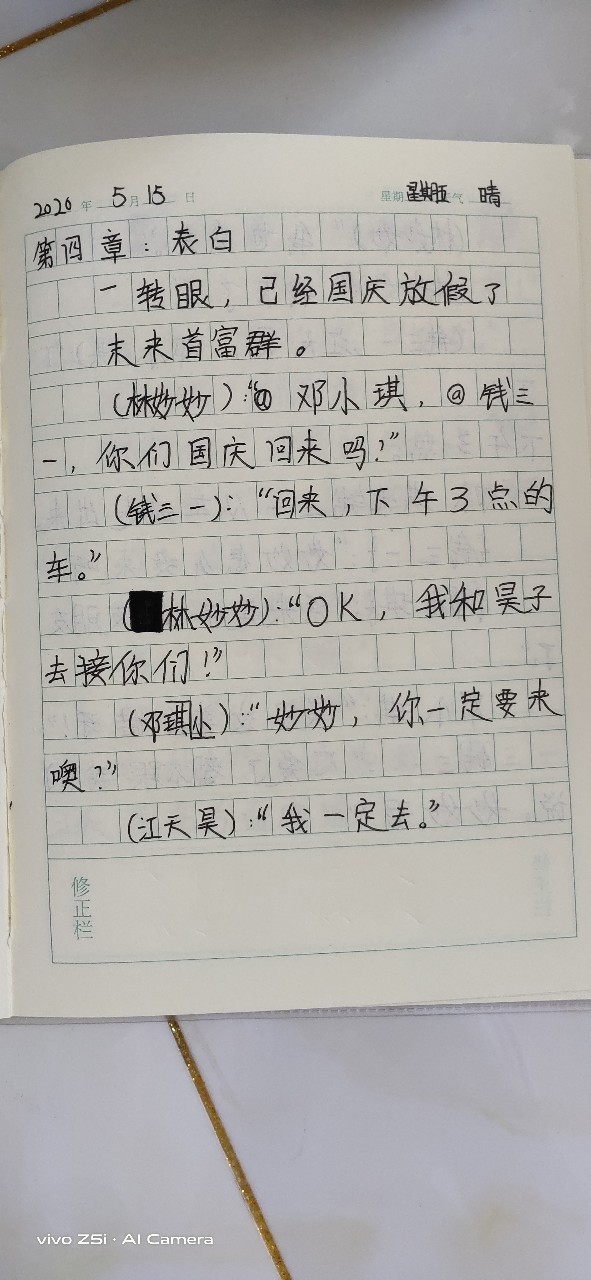 2020年 5月15日 星期 星期五 天气 晴
第四章：表白
一转眼，已经国庆放假了
末来首富群。
(林妙妙)：“@邓小琪，@钱三
一，你们国庆回来吗？”
(钱三一)：“回来，下午3点的
车。”
(林妙妙)：“OK，我和昊子
去接你们！”
(邓琪小)：“妙妙，你一定要来
噢？”
(江天昊)：“我一定去。”
修正栏
vivo Z5i · AI Camera